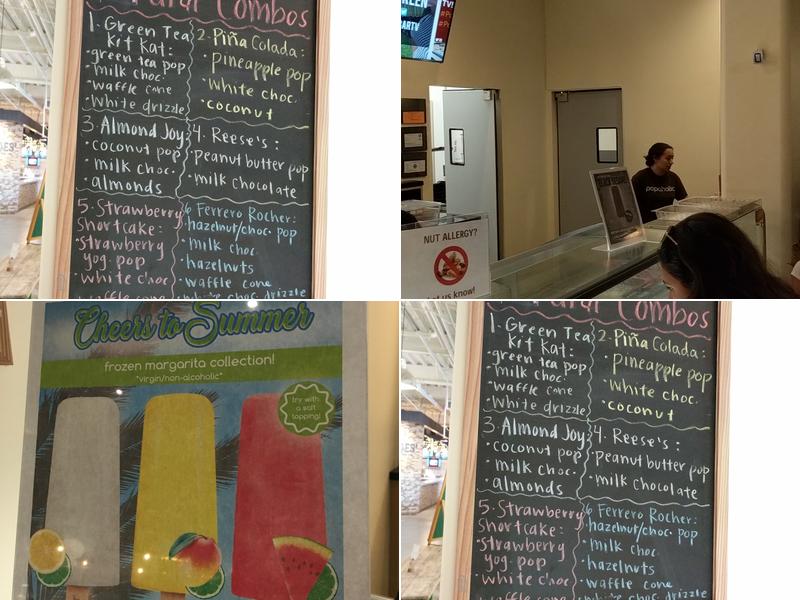 Combos
1. Green Tea
Kit Kat:
• green tea pop
• milk choc.
• waffle cone
• White drizzle
2. Piña Colada:
• pineapple pop
• White choc.
• coconut
3. Almond Joy:
• coconut pop
• milk choc.
• almonds
4. Reese's:
• Peanut butter pop
• milk chocolate
5. Strawberry
Shortcake:
• strawberry
yog. pop
• white choc
waffle cone
6 Ferrero Rocher:
• hazelnut/choc. pop
• milk choc
• hazelnuts
• waffle cone
• white choc drizzle
popaholic
NUT ALLERGY?
let us know!
Cheers to Summer
frozen margarita collection!
*virgin/non-alcoholic*
try with
a salt
topping!
Combos
1. Green Tea
Kit Kat:
• green tea pop
• milk choc.
• waffle cone
• White drizzle
2. Piña Colada:
• pineapple pop
• White choc.
• coconut
3. Almond Joy:
• coconut pop
• milk choc.
• almonds
4. Reese's:
• Peanut butter pop
• milk chocolate
5. Strawberry
Shortcake:
• strawberry
yog. pop
• white choc
waffle cone
6 Ferrero Rocher:
• hazelnut/choc. pop
• milk choc
• hazelnuts
• waffle cone
• white choc drizzle